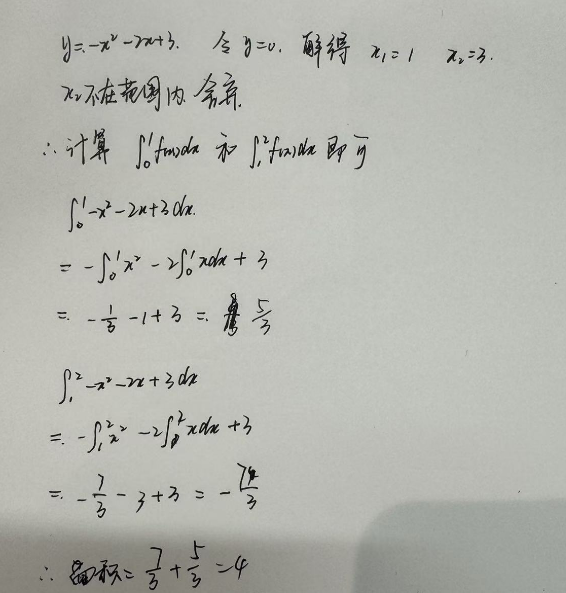 y=-x²-2x+3. 令y=0. 解得 x₁=1 x₂=3.
x₂不在范围内 舍弃.
∴计算 ∫₀¹f(x)dx 和 ∫₁²f(x)dx 即可
∫₀¹-x²-2x+3dx.
= -∫₀¹x² - 2∫₀¹xdx + 3
= -1/3 - 1 + 3 = 5/3
∫₁²-x²-2x+3dx
= -∫₁²x² - 2∫₁²xdx + 3
= -7/3 - 3 + 3 = -7/3
∴面积= 7/3 + 5/3 = 4